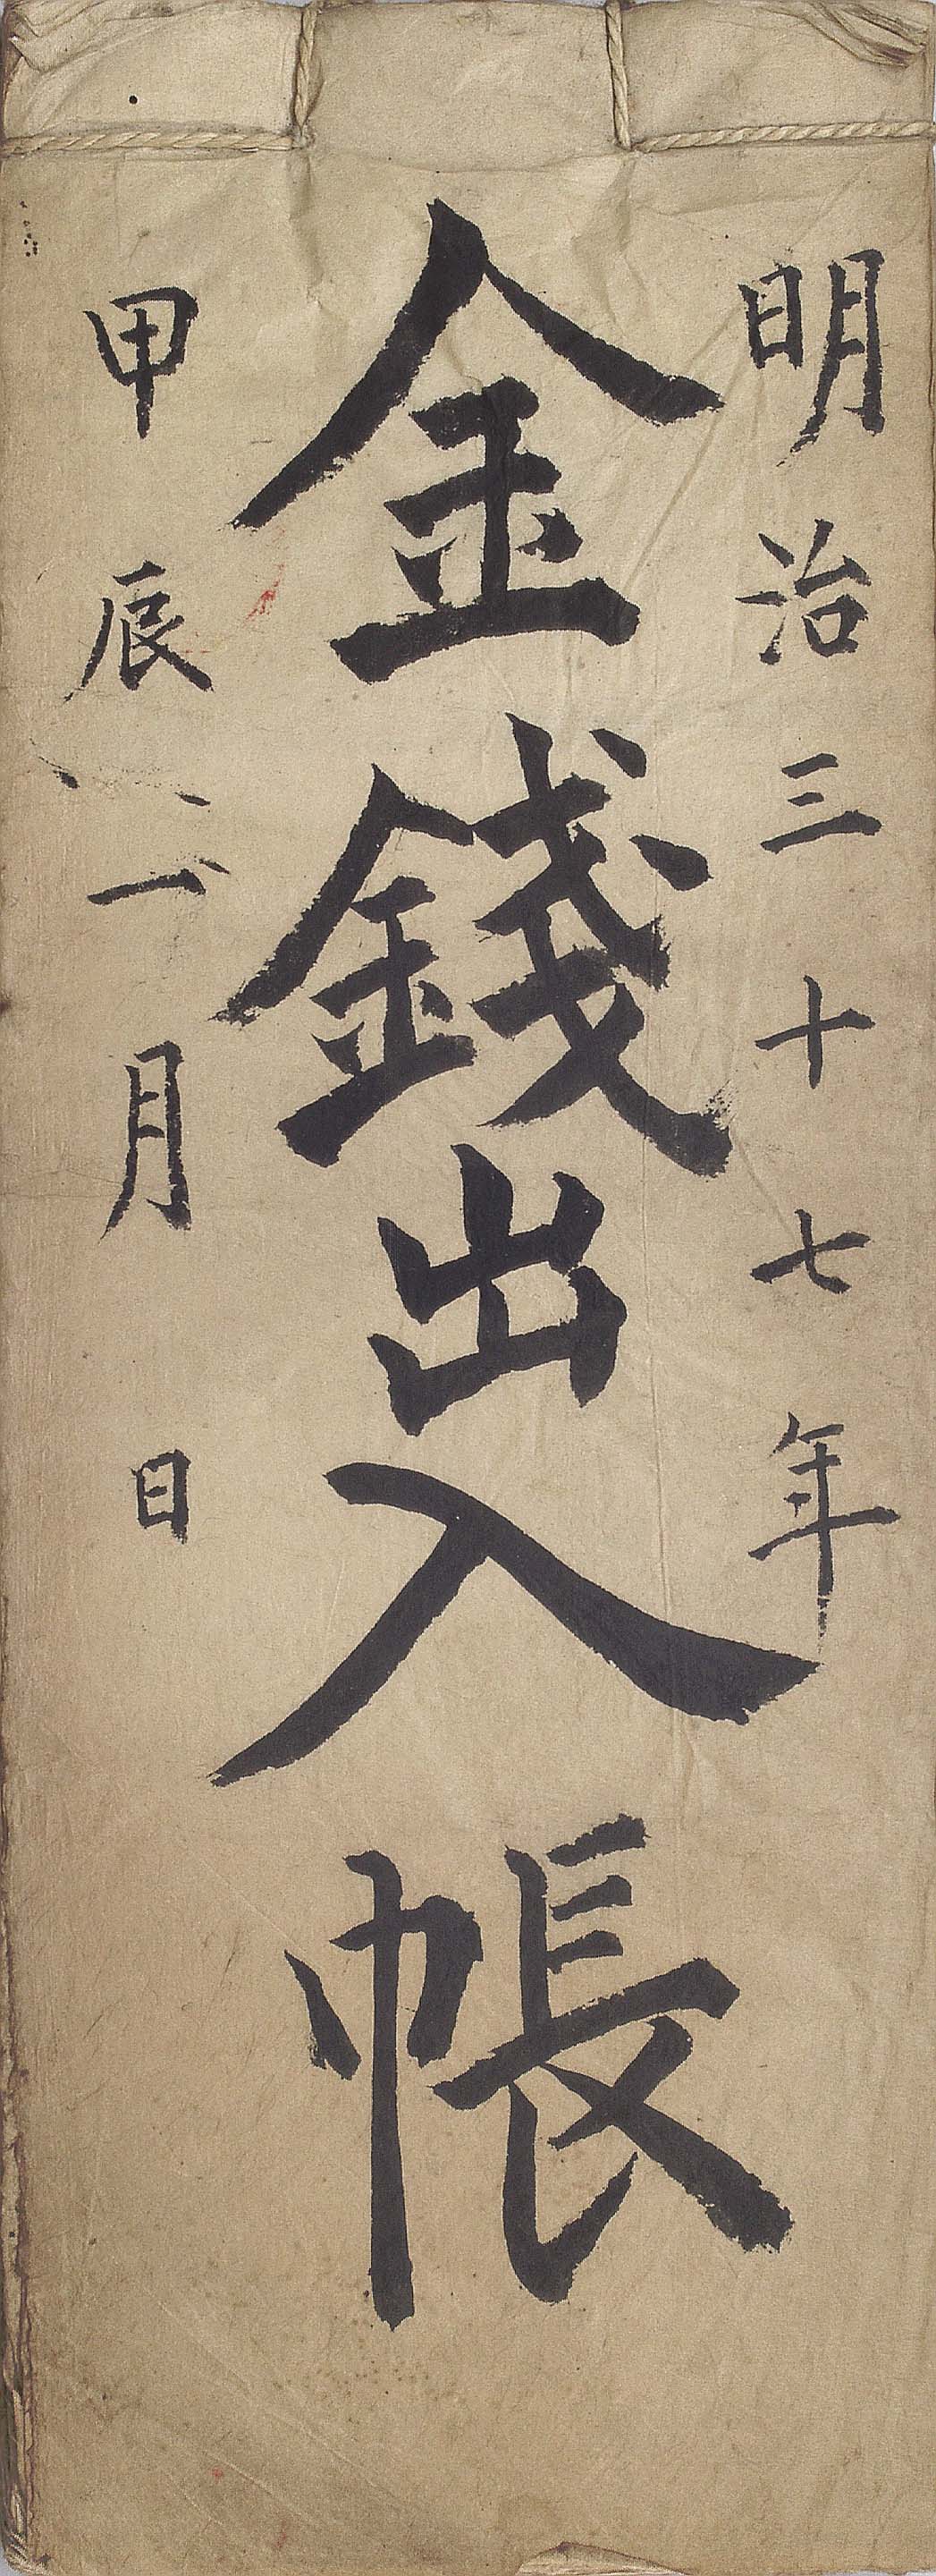 明治三十七年
金錢出入帳
甲辰一月 日